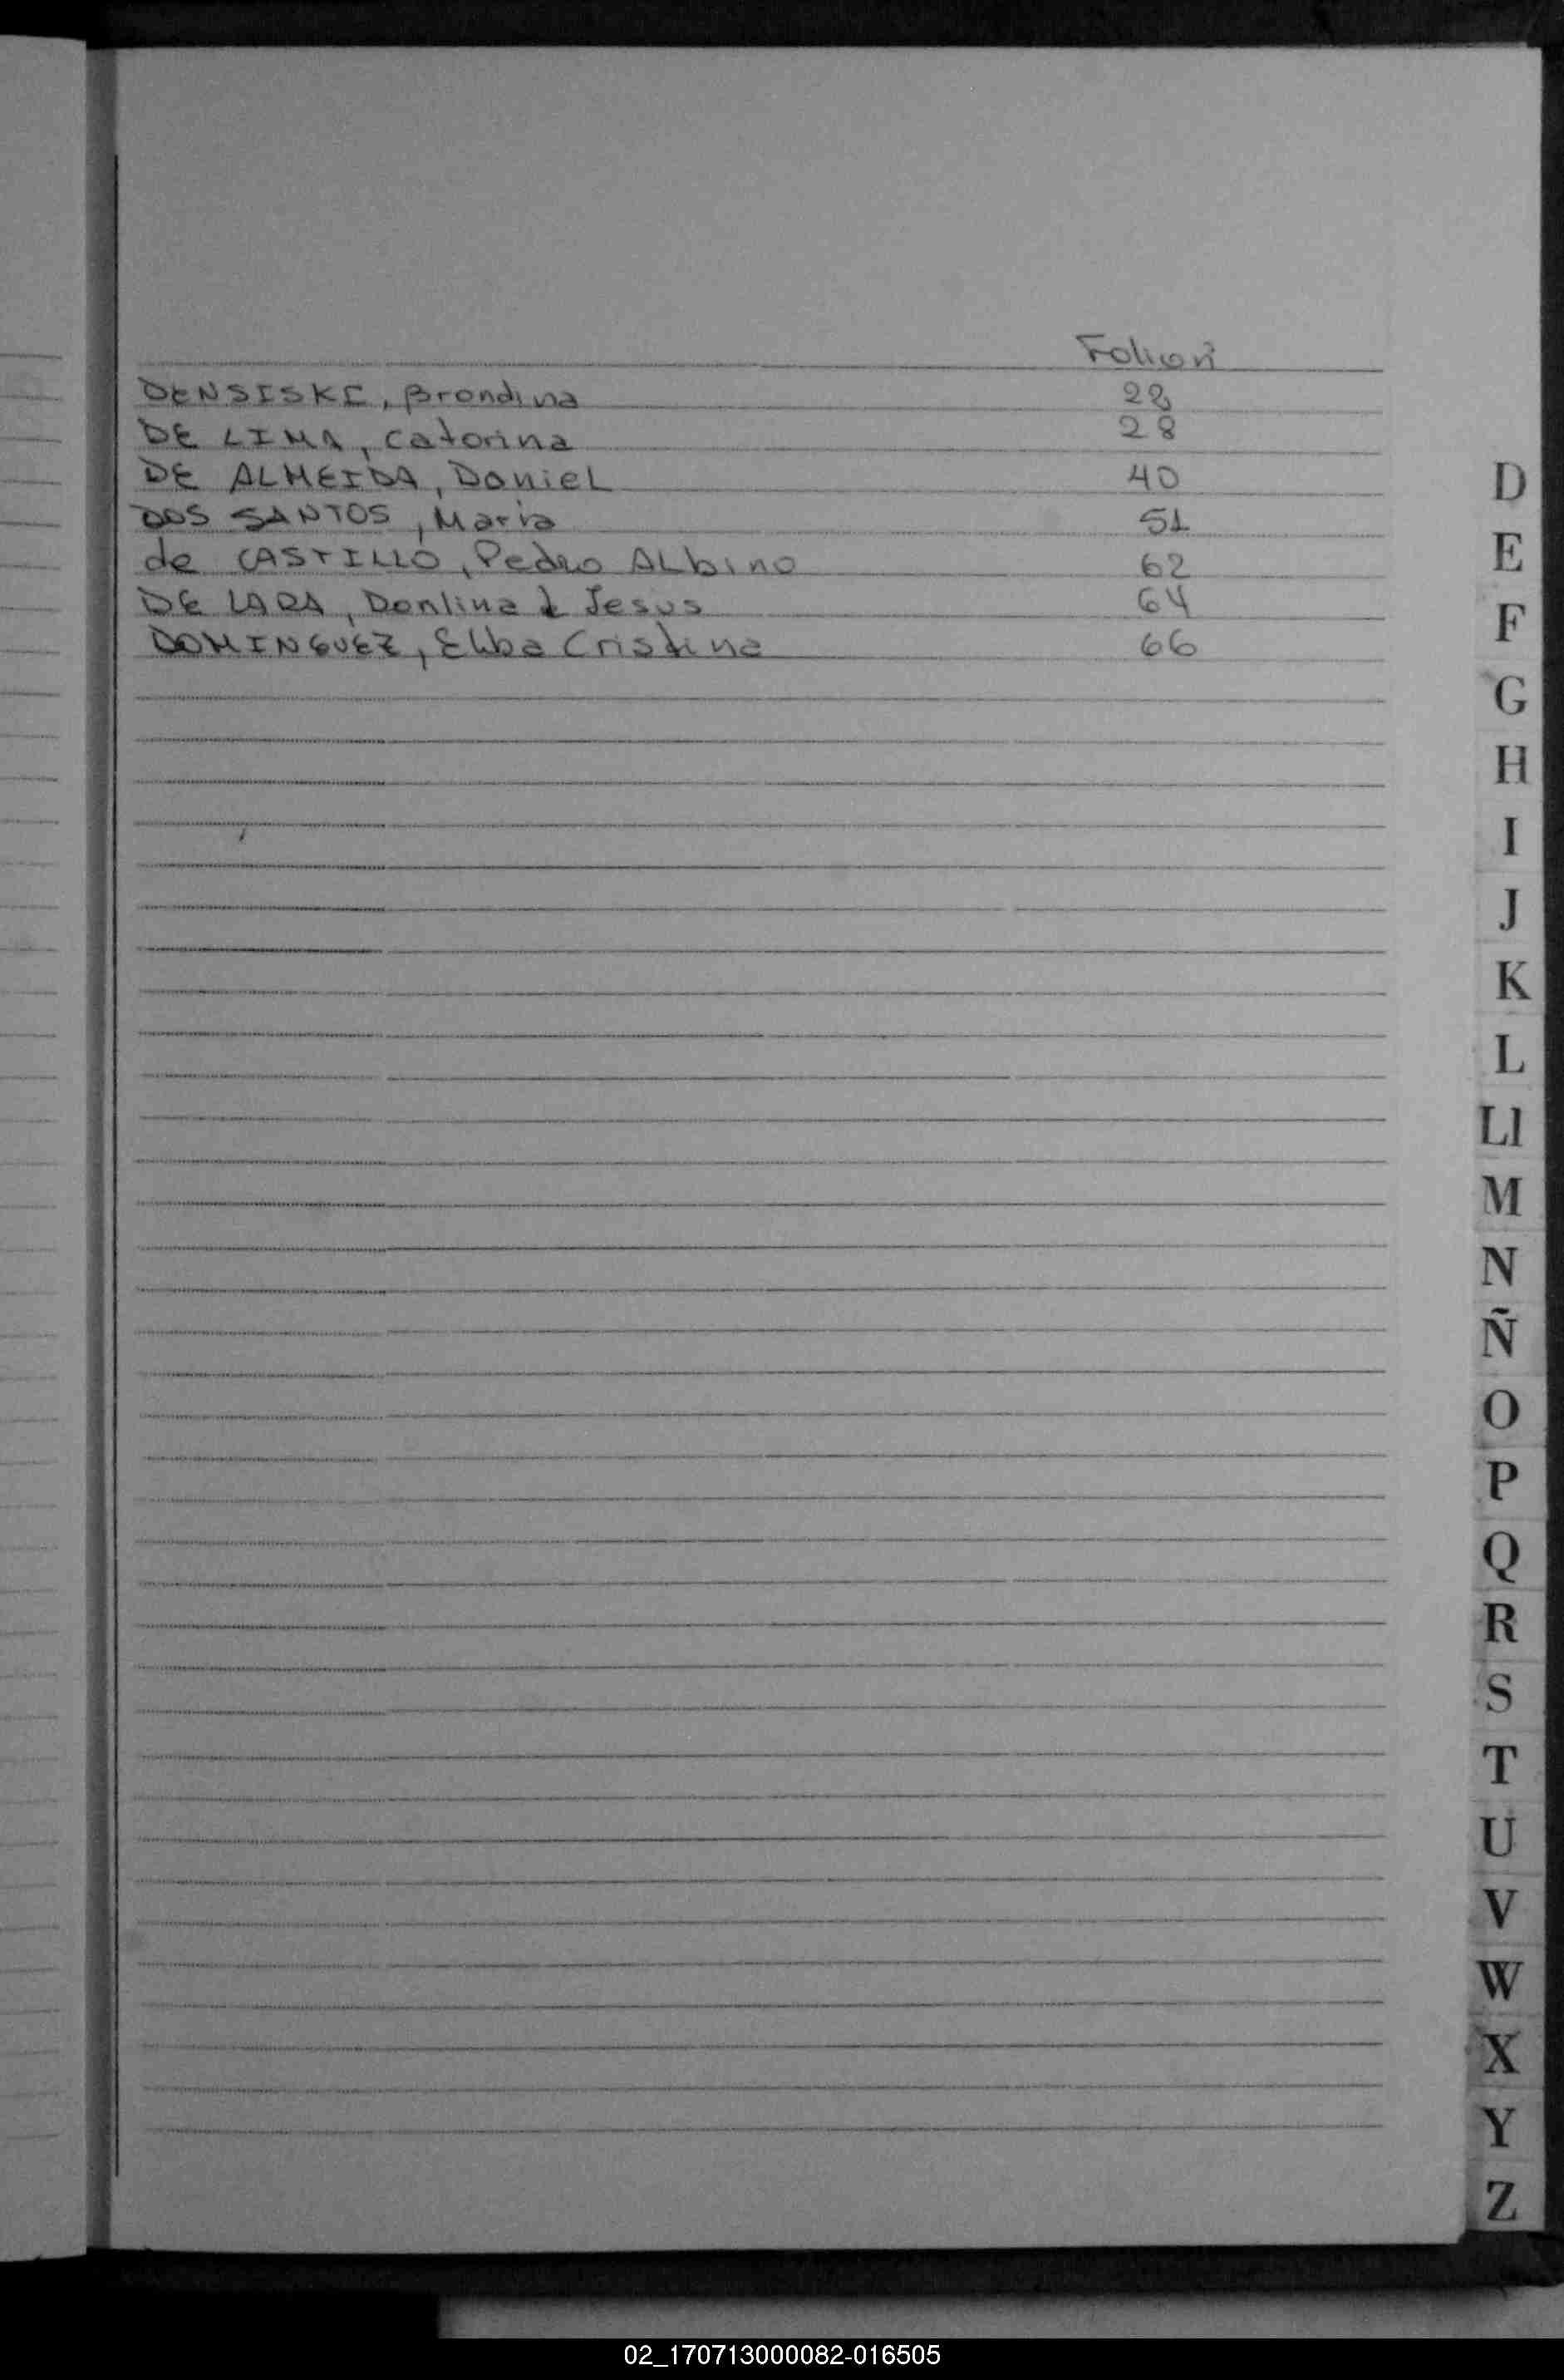 DENSISKE, Brondina 28
DE LIMA, Catarina 28
DE ALMEIDA, Daniel 40
DOS SANTOS, Maria 51
de CASTILLO, Pedro Albino 62
DE LARA, Jesus 64
DOMINGUEZ, Elba Cristina 66
D
E
F
G
H
I
J
K
L
Ll
M
N
Ñ
O
P
Q
R
S
T
U
V
W
X
Y
Z
02_170713000082-016505